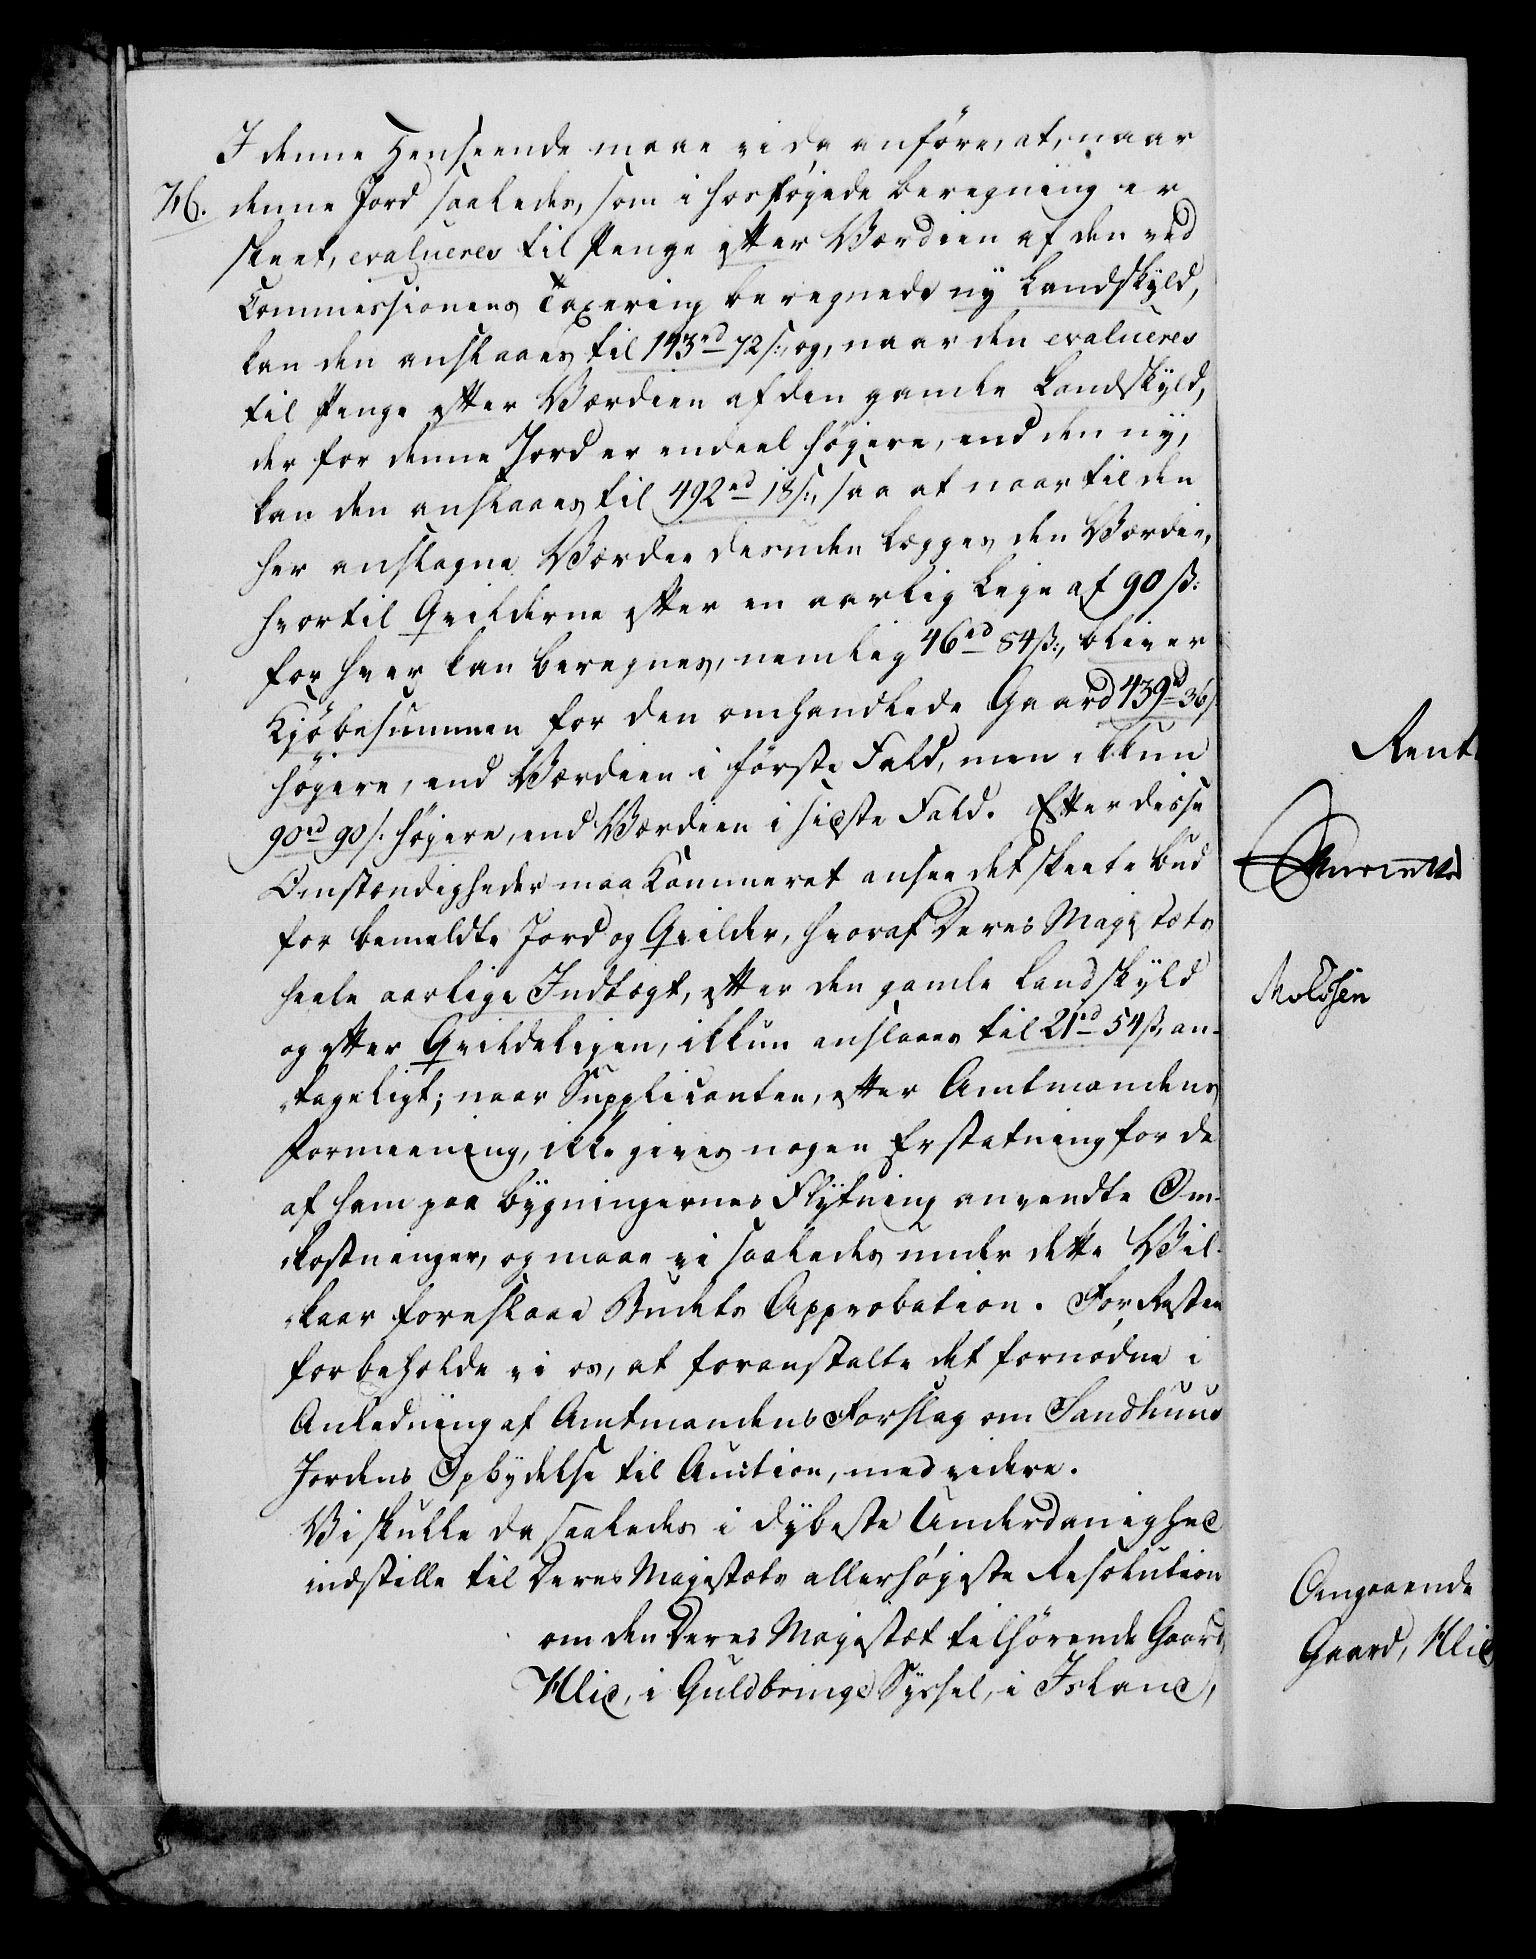 I denne Henseende maae vi da anføre, at, naar
H. denne Jord saaledes, som i hosføjede Beregning er
skeet, evalueres til Penge efter Værdien af den ved
Commissionens Taxering beregnede ny Landskyld,
kan den anslaaes til 143rd 72s:, og, naar den evalueres
til Penge efter Værdien af den gamle Landskyld,
der for denne Jord er endeel højere, end den ny,
kan den anslaaes til 492rd 18s:, saa at naar til den
her anslagne Værdie desuden lægges den Værdie,
hvortil Qvilderne efter en aarlig Leje af 90 ß:
for hver kan beregnes, nemlig 46rd 84ß:, bliver
Kjøbesummen for den omhandlede Gaard 439rd 36s
højere, end Værdien i første Fald, men ikkun
90rd 90s. højere, end Værdien i sidste Fald. Efter disse
Omstændigheder maa Kammeret ansee det skeete Bud
for bemeldte Jord og Qvilder, hvoraf Deres Majestæts
heele aarlige Indtægt, efter den gamle Landskyld
og efter Qvildelejen, ikkun anslaaes til 21rd 54ß, an-
tageligt; naar Supplicanten, efter Amtmandens
Formeening, ikke gives nogen Erstatning for de
af ham paa Bygningernes Flytning anvendte Om-
kostninger, og maae vi saaledes under dette Vil-
kaar foreslaae Budets Approbation. For Resten
forbeholde vi os, at foranstalte det fornødne i
Anledning af Amtmandens Forslag om Sandhuus
Jordens Opbydelse til Auction, med videre.
Vi skulle da saaledes i dybeste Underdanighed
indstille til Deres Majestæts allerhøjeste Resolution
om den Deres Majestæt tilhørende Gaard
Hlid, i Guldbringe Syssel, i Island,
Rent
Angaaende
Gaard, Hlid